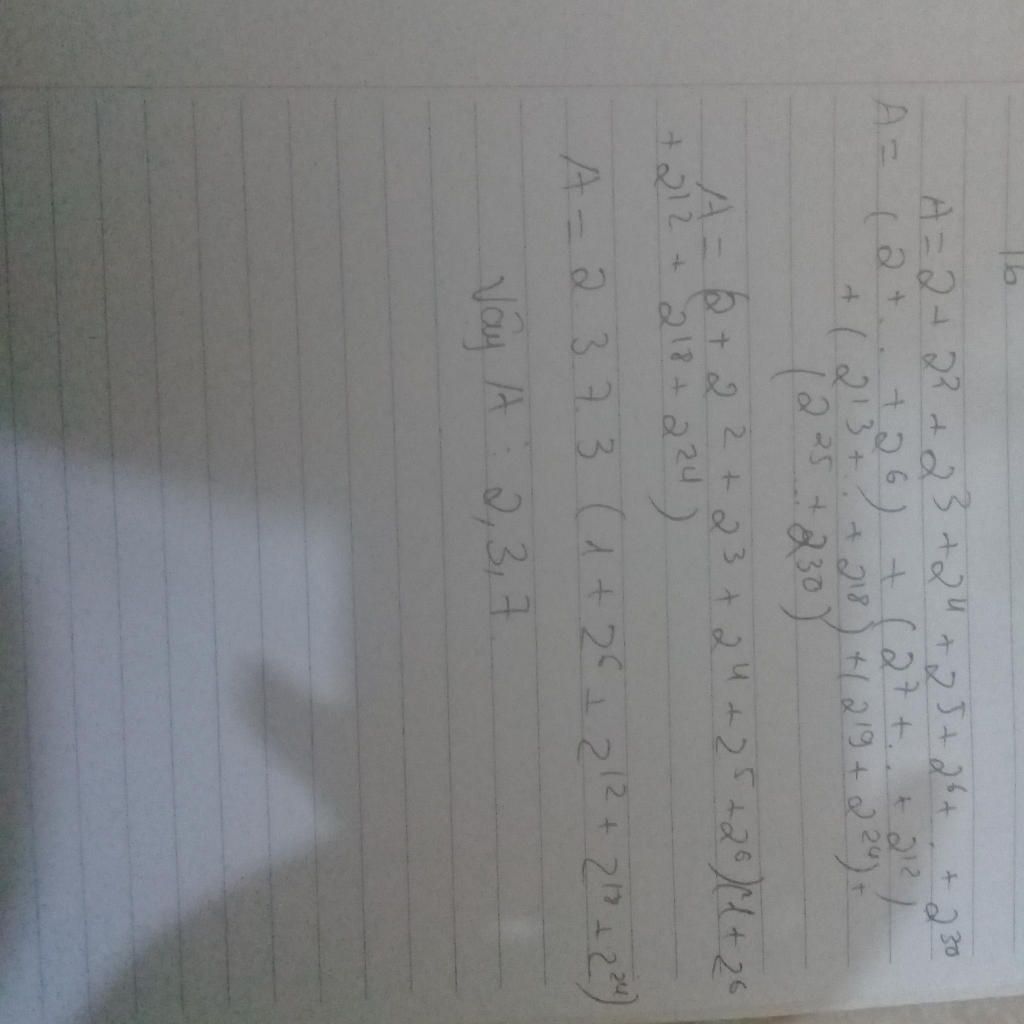 1b
A = 2 + 2² + 2³ + 2⁴ + 2⁵ + 2⁶ + .. + 2³⁰
A = (2 + .. + 2⁶) + (2⁷ + .. + 2¹²)
+ (2¹³ + .. + 2¹⁸) + (2¹⁹ + 2²⁴) +
(2²⁵ ... + 2³⁰)
A = (2 + 2² + 2³ + 2⁴ + 2⁵ + 2⁶)(1 + 2⁶
+ 2¹² + 2¹⁸ + 2²⁴)
A = 2 3 7. 3 (1 + 2⁶ + 2¹² + 2¹⁸ + 2²⁴)
Vậy A ⋮ 2, 3, 7